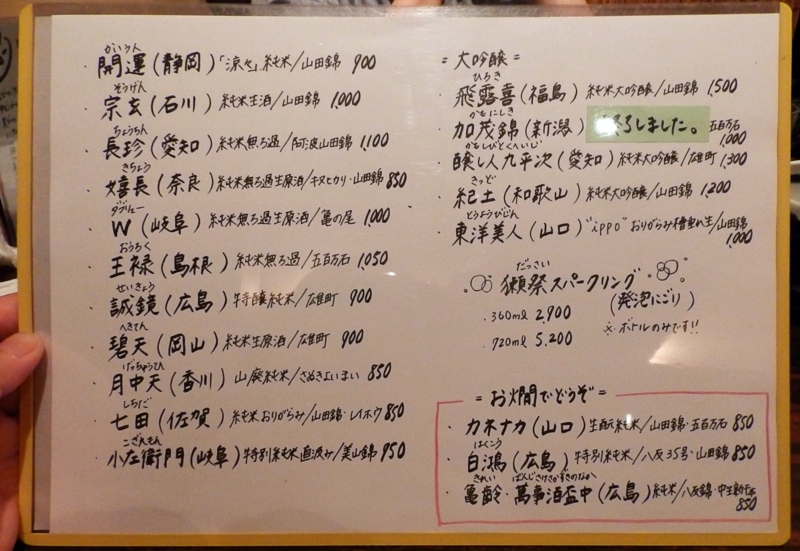 かいうん
・開運(静岡)「涼々」純米/山田錦 900
そうげん
・宗玄(石川) 純米生酒/山田錦 1,000
ちょうちん
・長珍(愛知) 純米無ろ過/阿波山田錦 1,100
きちょう
・嬉長(奈良) 純米無ろ過生原酒/キヌヒカリ・山田錦 850
ダブリュー
・W(岐阜) 純米無ろ過生原酒/亀の尾 1,000
おうろく
・王祿(島根) 純米無ろ過/五百万石 1,050
せいきょう
・誠鏡(広島) 特醸純米/雄町 900
へきてん
・碧天(岡山) 純米生原酒/雄町 900
げっちゅうてん
・月中天(香川) 山廃純米/さぬきよいまい 850
しちだ
・七田(佐賀) 純米おりがらみ/山田錦・レイホウ 850
こざえもん
・小左衛門(岐阜) 特別純米直汲み/美山錦 950
= 大吟醸 =
ひろき
・飛露喜(福島) 純米大吟醸/山田錦 1,500
かもにしき
・加茂錦(新潟) 終了しました。 五百万石 1,000
かもしびとくへいじ
・醸し人九平次(愛知) 純米大吟醸/雄町 1,300
きっど
・紀土(和歌山) 純米大吟醸/山田錦 1,200
とうようびじん
・東洋美人(山口) "ippo" おりがらみ槽垂れ生/山田錦 1,000
だっさい
獺祭スパークリング
(発泡にごり)
・360ml 2,900
※ボトルのみです!!
・720ml 5,200
= お燗でどうぞ =
・カネナカ(山口) 生酛純米/山田錦・五百万石 850
はくこう
・白鴻(広島) 特別純米/八反35号・山田錦 850
きれい ばんじさけさかずきのなか
・亀齢・萬事酒盃中(広島) 純米/八反錦・中生新千本
850